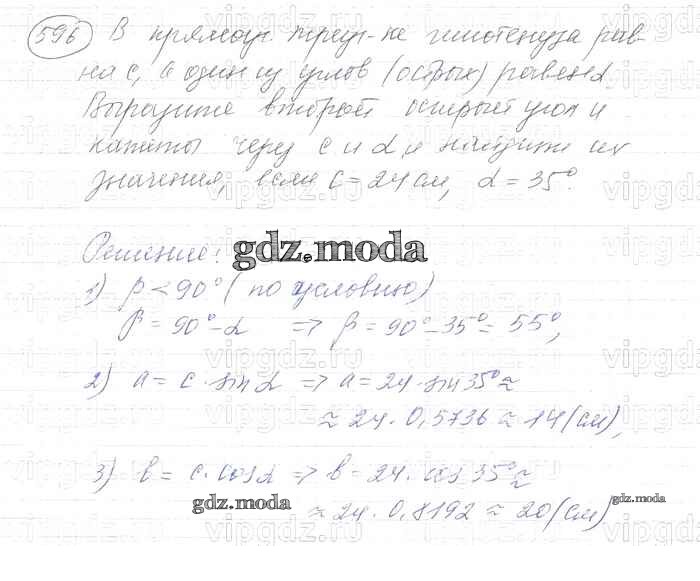 596 В прямоуг. треуг-ке гипотенуза рав-
на c, а один из углов (острых) равен α.
Выразите второй острый угол и
катеты через c и α и найдите их
значения, если c = 24 см, α = 35°.
Решение:
gdz.moda
1) β < 90° (по условию)
β = 90° - α => β = 90° - 35° = 55°,
2) a = c · sin α => a = 24 · sin 35° ≈
≈ 24 · 0,5736 ≈ 14 (см),
3) b = c · cos α => b = 24 · cos 35° ≈
≈ 24 · 0,8192 ≈ 20 (см)
gdz.moda
gdz.moda